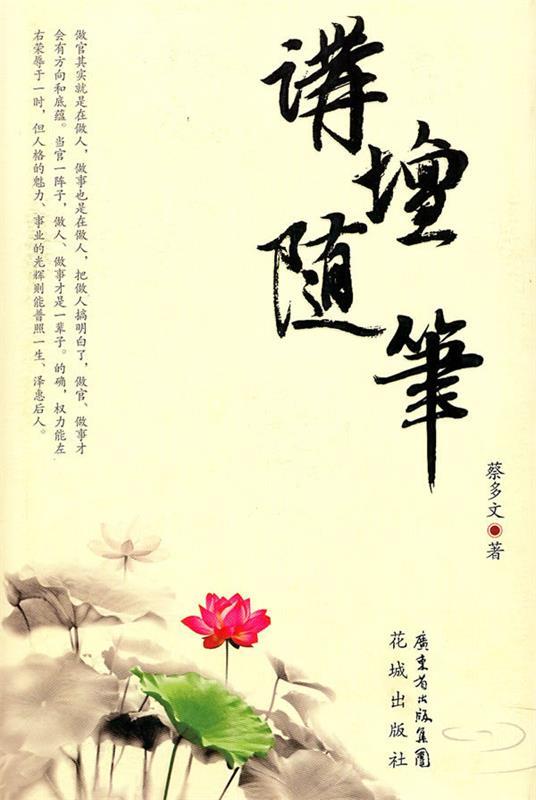 講壇
随筆
蔡多文 著
做官其实就是在做人，做事也是在做人，把做人搞明白了，做官、做事才
会有方向和底蕴。当官一阵子，做人、做事才是一辈子。的确，权力能左
右荣辱于一时，但人格的魅力、事业的光辉则能普照一生、泽惠后人。
廣東省出版集團
花城出版社